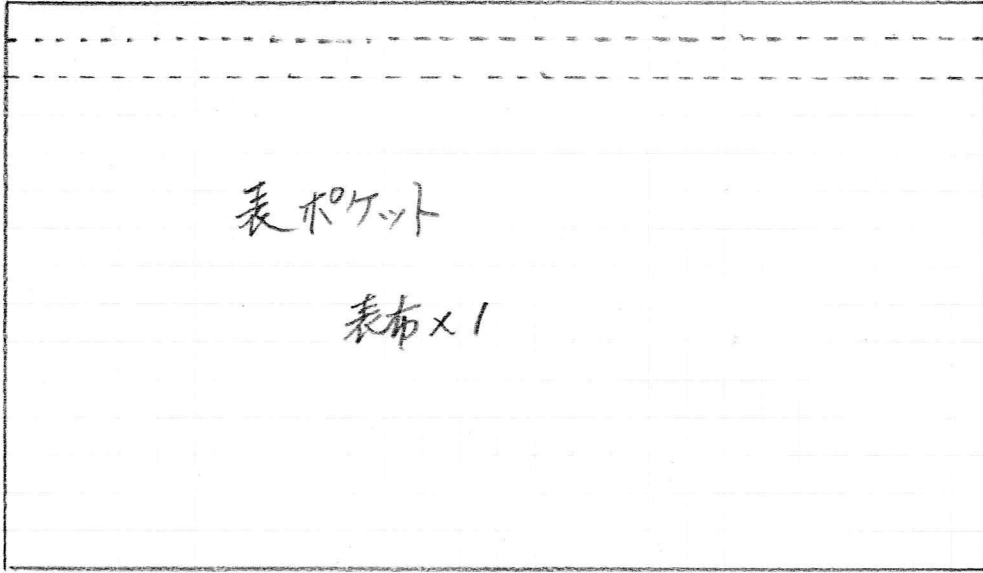 表ポケット
表布×1